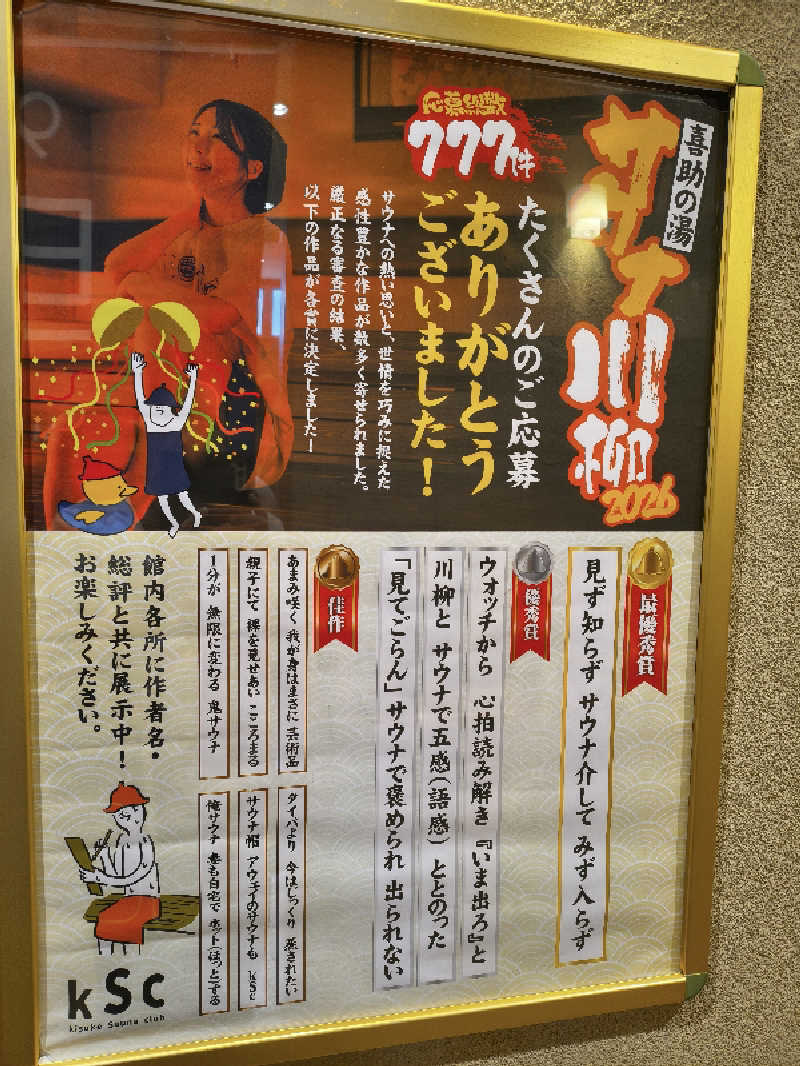 喜助の湯
サウナ川柳
2026
応募総数
777件
たくさんのご応募
ありがとう
ございました!
サウナへの熱い思いと、世情を巧みに捉えた
感性豊かな作品が数多く寄せられました。
厳正なる審査の結果、
以下の作品が各賞に決定しました!
最優秀賞
見ず知らず サウナ介して みず入らず
優秀賞
ウォッチから 心拍読み解き 『いま出ろ』と
川柳と サウナで五感(語感) ととのった
「見てごらん」サウナで褒められ 出られない
佳作
あまみ咲く 我が身はまさに 芸術品
親子にて 裸を見せあい こころまる
1分が 無限に変わる 鬼サウナ
タイパより 今はじっくり 蒸されたい
サウナ帽 アウェイのサウナも kSc
俺サウナ 妻も自宅で ホット(ほっと)する
館内各所に作者名・
総評と共に展示中!
お楽しみください。
kSc
kisuke Sauna club